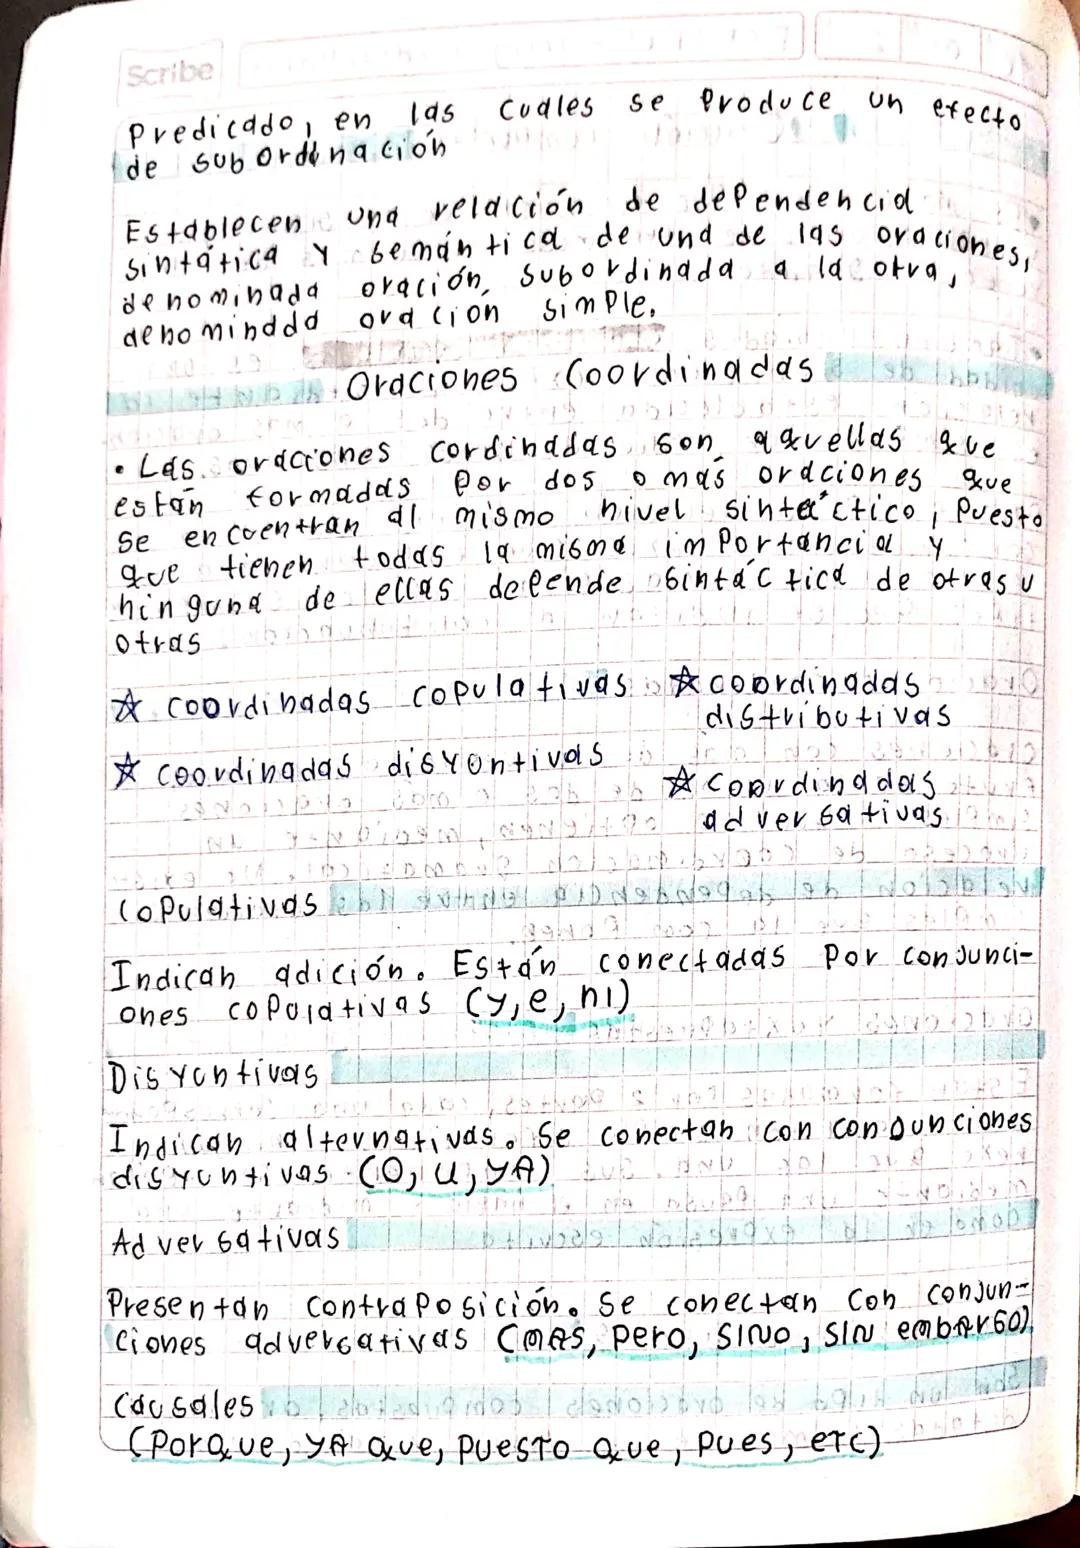 Scribe
Predicado, en las cuales se Produce un efecto
de subordinación
Establecen una relación de dependencia
sintática y semántica de una de las oraciones,
denominada oración subordinada a la otra,
denominada oración simple.
Oraciones Coordinadas
• Las oraciones cordinadas son aquellas que
están formadas por dos o más oraciones que
se encuentran al mismo nivel sintáctico, Puesto
que tienen todas la misma importancia y
ninguna de ellas depende sintáctica de otras u
otras
☆ coordinadas copulativas ☆ coordinadas
distributivas
☆ coordinadas disyontivas
☆ coordinadas
adversativas
Copulativas
Indican adición. Están conectadas por conjunci-
ones copulativas (y, e, ni)
Disyuntivas
Indican alternativas. Se conectan con conjunciones
disyuntivas (O, u, yA)
Adversativas
Presentan contraposición. Se conectan con conjun-
ciones adversativas (mAs, pero, sino, sin embargo)
Causales
(Porque, yA que, puesto que, pues, etc)